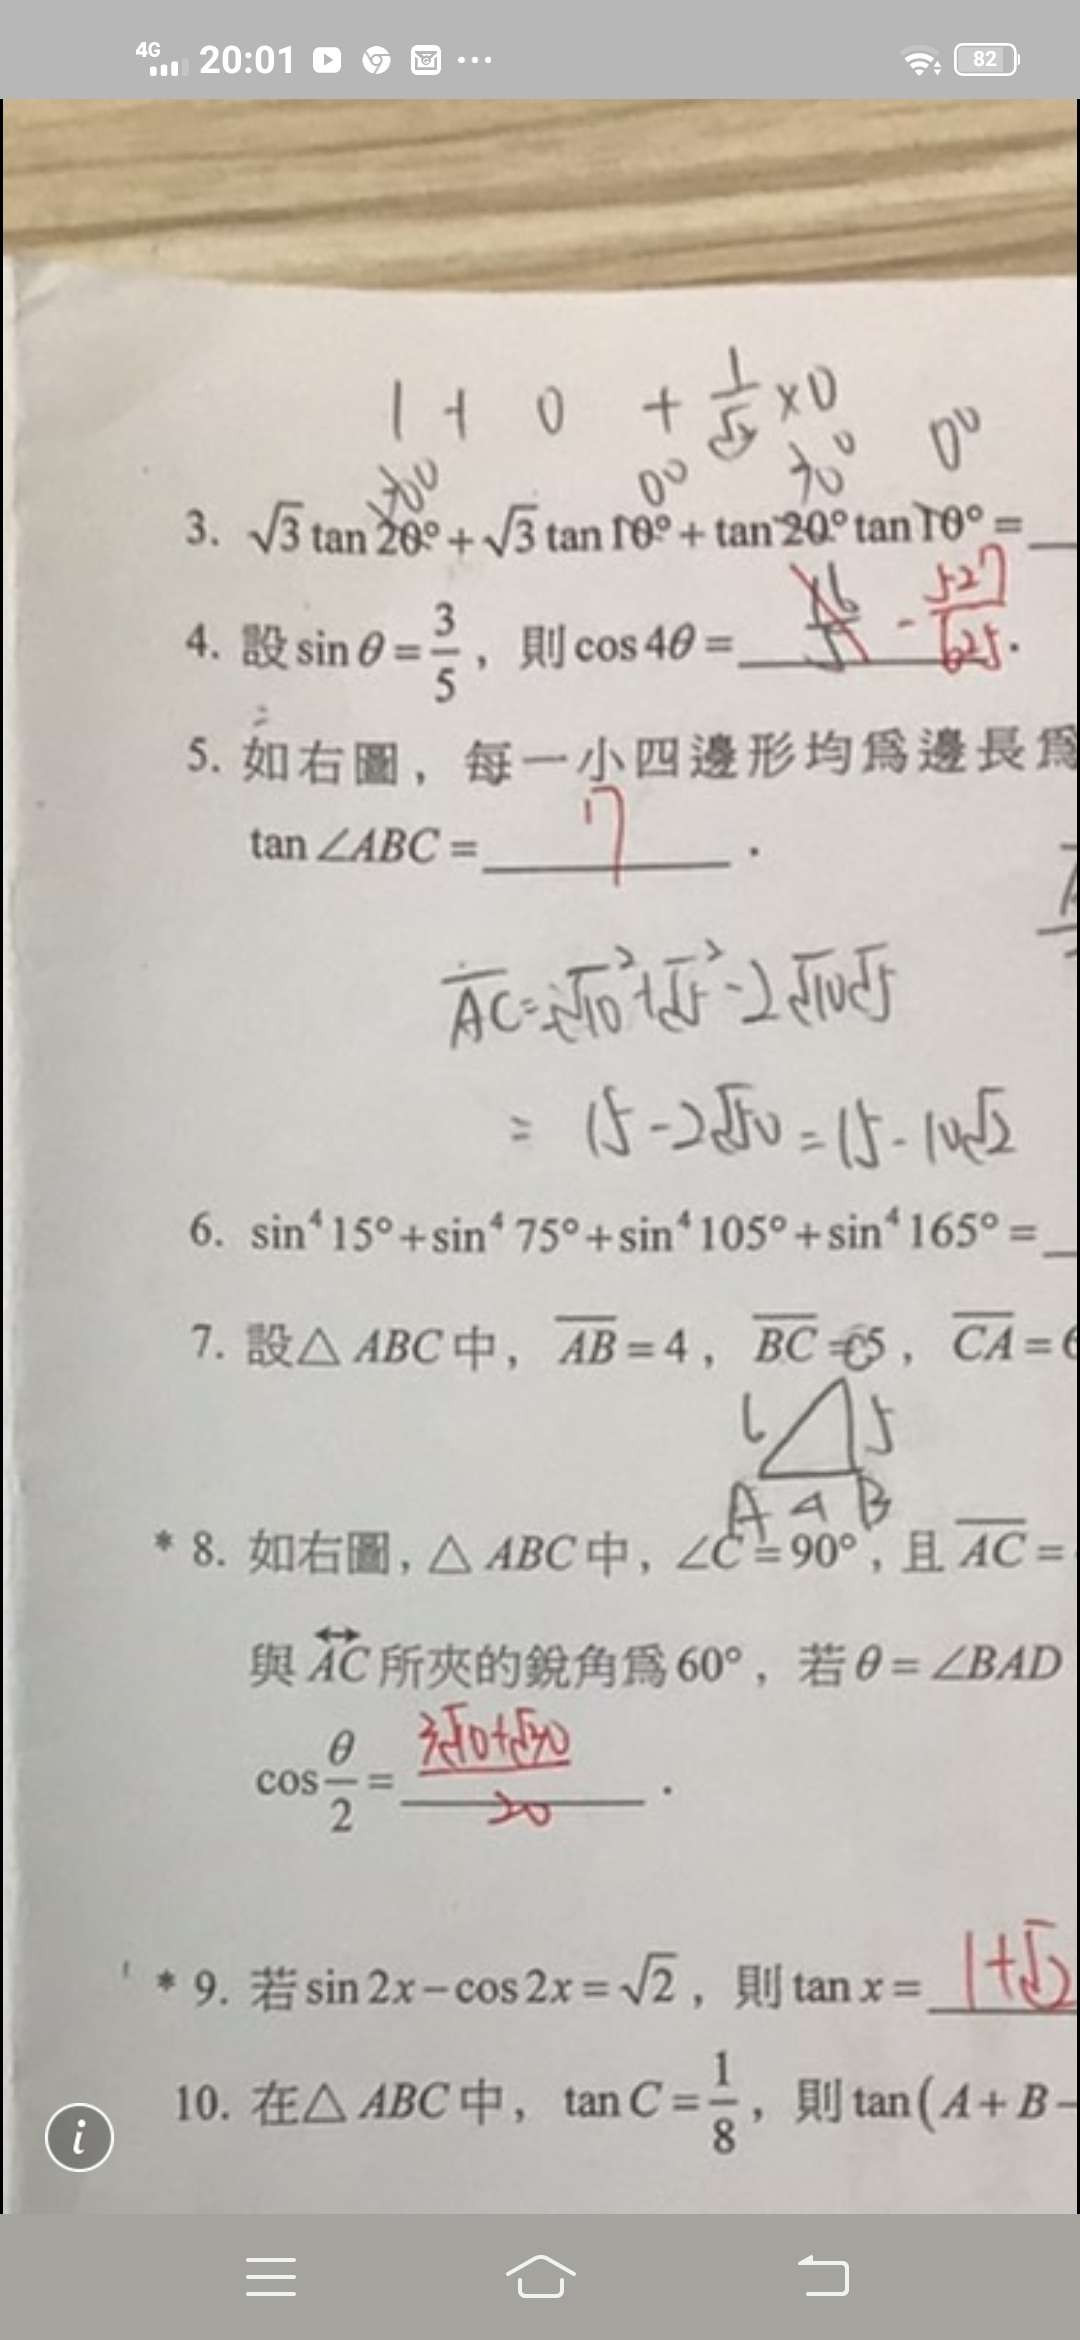 4G 20:01 82
1 + 0 + 1/√3 × 0
0° 0°
3. √3 tan 20° + √3 tan 10° + tan 20° tan 10° =
4. 設 sin θ = 3/5 , 則 cos 4θ = - 527/625 .
5. 如右圖 , 每一小四邊形均為邊長為
tan ∠ABC = 7 .
AC = √10² + √5² - 2√10√5
= 15 - 2√50 = 15 - 10√2
6. sin⁴ 15° + sin⁴ 75° + sin⁴ 105° + sin⁴ 165° =
7. 設 △ ABC 中 , AB = 4 , BC = 5 , CA = 6
6 5
A 4 B
* 8. 如右圖 , △ ABC 中 , ∠C = 90° , 且 AC =
與 AC 所夾的銳角為 60° , 若 θ = ∠BAD
cos θ/2 = 3√10+√30/20 .
* 9. 若 sin 2x − cos 2x = √2 , 則 tan x = 1+√2
10. 在 △ ABC 中 , tan C = 1/8 , 則 tan ( A + B −
i